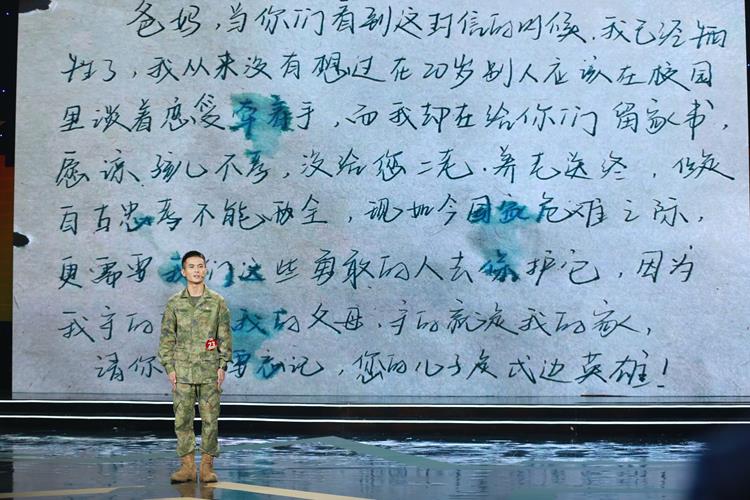 爸妈,当你们看到这封信的时候,我已经牺
牲了,我从来没有想过在20岁别人应该在校园
里谈着恋爱牵着手,而我却在给你们留家书,
愿谅孩儿不孝,没给您二老.养老送终,但是
自古忠孝不能两全,现如今国家危难之际,
更需要我们这些勇敢的人去保护它,因为
我守的 我的父母,守的就是我的家人,
请你 要忘记,您的儿子是戍边英雄!